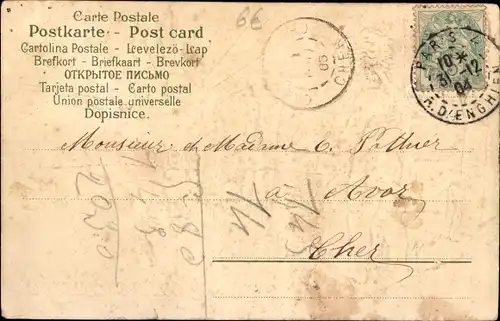 Carte Postale
Postkarte - Post card
Cartolina Postale - Levelező-Lap
Brefkort - Briefkaart - Brevkort
ОТКРЫТОЕ ПИСЬМО
Tarjeta postal - Carto postal
Union postale universelle
Dopisnice.
6E
PARIS
10
31 -12
04
R. D'ENGHIEN
CHER
05
Monsieur & Madame C.
à Avor
Cher